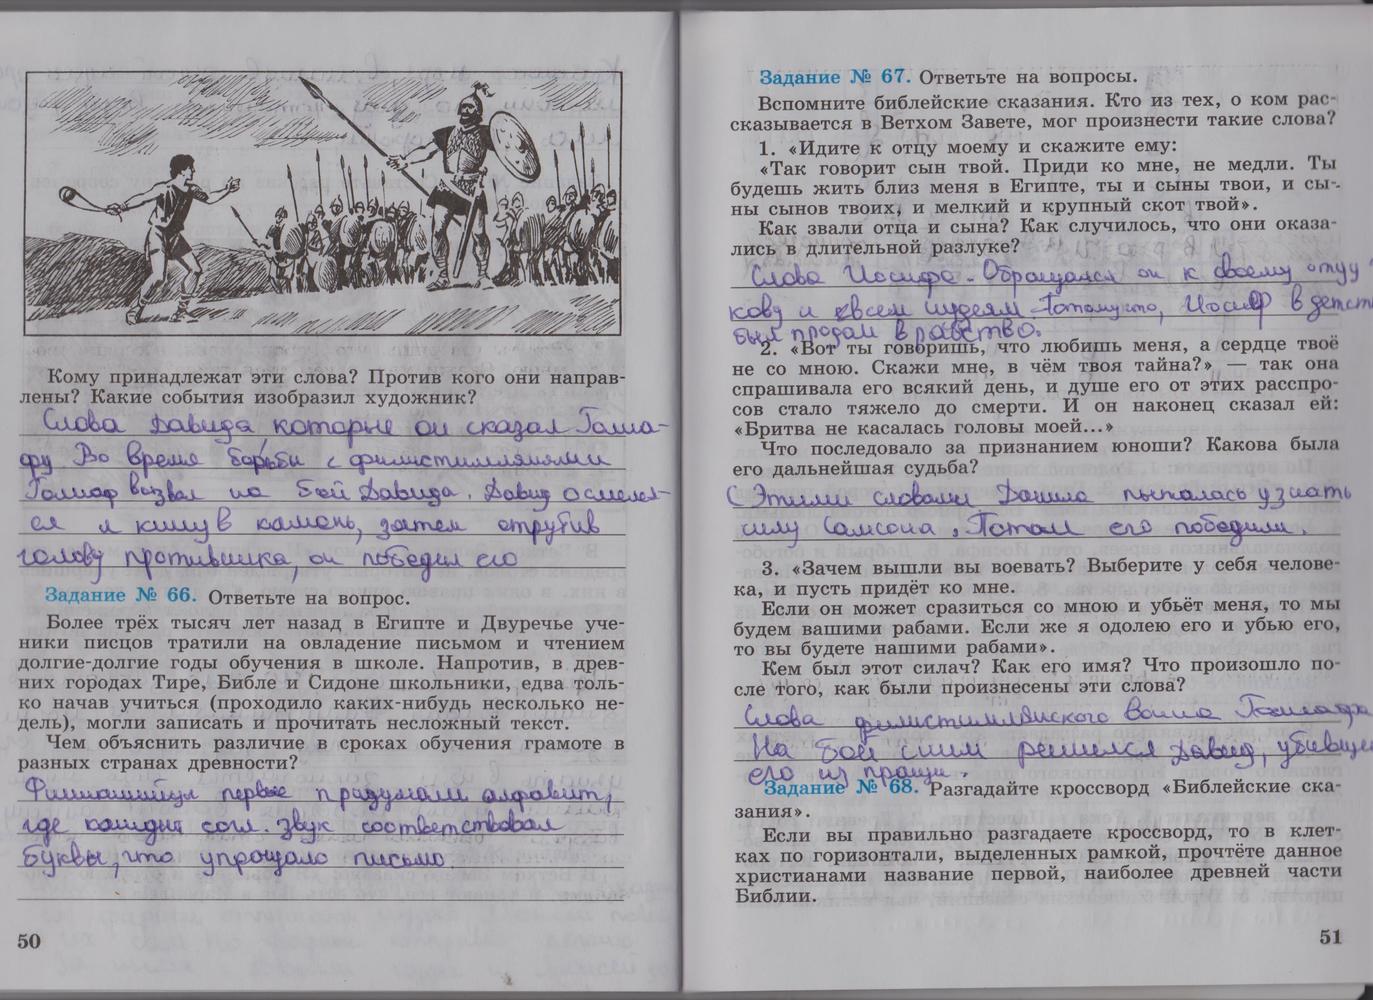 Кому принадлежат эти слова? Против кого они направ-
лены? Какие события изобразил художник?
Слова Давида, которые он сказал Голиа-
фу Во время борьбы с филистимлянами
Голиаф вызвал на бой Давида. Давид осмелел-
ся и кинув камень, затем отрубив
голову противника, он победил его
Задание № 66. Ответьте на вопрос.
Более трёх тысяч лет назад в Египте и Двуречье уче-
ники писцов тратили на овладение письмом и чтением
долгие-долгие годы обучения в школе. Напротив, в древ-
них городах Тире, Библе и Сидоне школьники, едва толь-
ко начав учиться (проходило каких-нибудь несколько не-
дель), могли записать и прочитать несложный текст.
Чем объяснить различие в сроках обучения грамоте в
разных странах древности?
первые придумали алфавит,
где каждый согл. звук соответствовал
буквы, что упрощало письмо
50
Задание № 67. Ответьте на вопросы.
Вспомните библейские сказания. Кто из тех, о ком рас-
сказывается в Ветхом Завете, мог произнести такие слова?
1. «Идите к отцу моему и скажите ему:
«Так говорит сын твой. Приди ко мне, не медли. Ты
будешь жить близ меня в Египте, ты и сыны твои, и сы-
ны сынов твоих, и мелкий и крупный скот твой».
Как звали отца и сына? Как случилось, что они оказа-
лись в длительной разлуке?
Слова Иосифа. Обращался он к своему отцу
кову и всем иудеям Потому что, Иосиф в детст
был продан в рабство.
2. «Вот ты говоришь, что любишь меня, а сердце твоё
не со мною. Скажи мне, в чём твоя тайна?» — так она
спрашивала его всякий день, и душе его от этих расспро-
сов стало тяжело до смерти. И он наконец сказал ей:
«Бритва не касалась головы моей...»
Что последовало за признанием юноши? Какова была
его дальнейшая судьба?
С Этими словами Далила пыталась узнать
силу Самсона. Потом его победили.
3. «Зачем вышли вы воевать? Выберите у себя челове-
ка, и пусть придёт ко мне.
Если он может сразиться со мною и убьёт меня, то мы
будем вашими рабами. Если же я одолею его и убью его,
то вы будете нашими рабами».
Кем был этот силач? Как его имя? Что произошло по-
сле того, как были произнесены эти слова?
Слова филистимлянского воина Голиафа
На бой с ним решился Давид, убивше
его из пращи.
Задание № 68. Разгадайте кроссворд «Библейские ска-
зания».
Если вы правильно разгадаете кроссворд, то в клет-
ках по горизонтали, выделенных рамкой, прочтёте данное
христианами название первой, наиболее древней части
Библии.
51